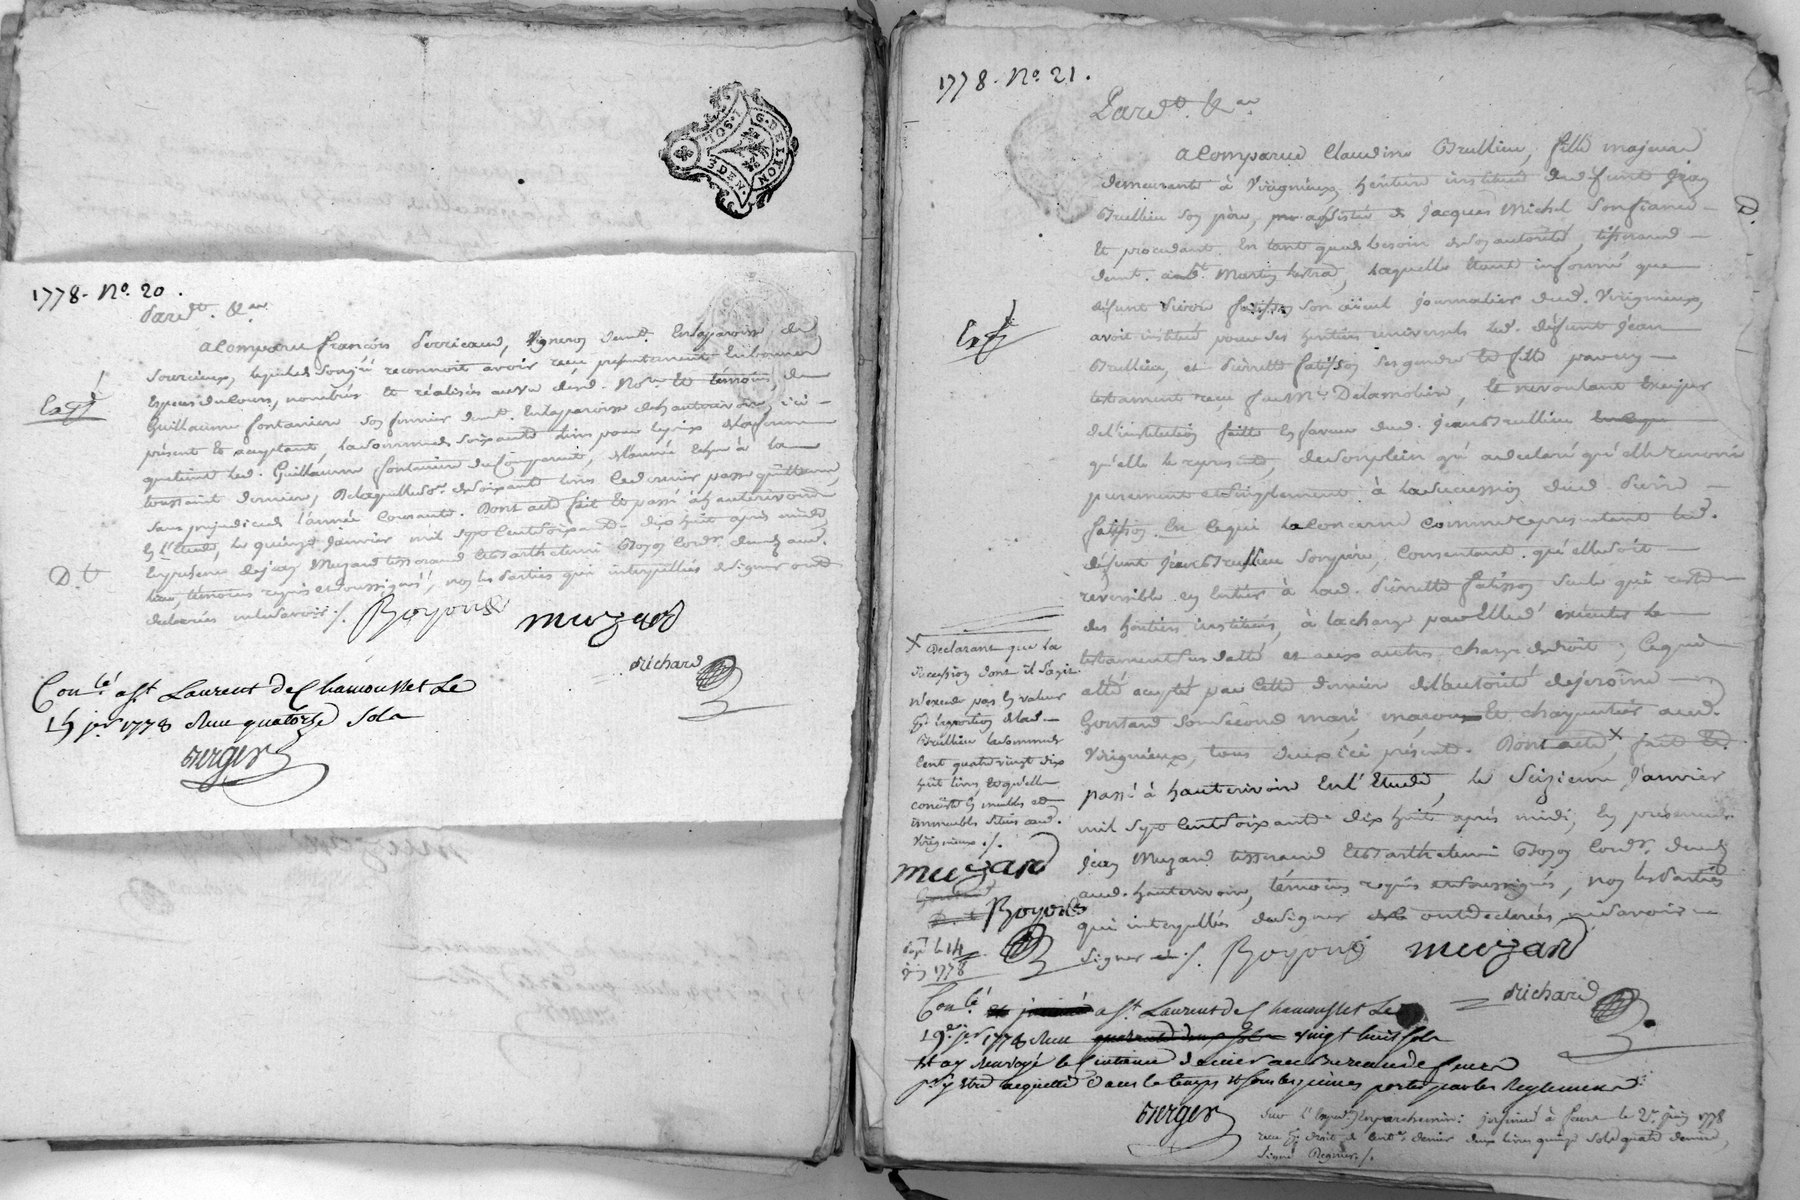 G. DE LYON
3 DEN.
1778. No. 20.
Pardt. &a
a Comparu françois Perricaud, Vigneron demt. En la paroisse de
Sourcieux, lequel de son gré reconnoit avoir reçu présentement En bonnes
Espèces du Cours, nombrés Et réalisés au vu desd. Nore. Et témoins, de
Guillaume fontanière son fermier demt. En la paroisse de hauterivoire, ici
présent Et acceptant, la somme de soixante livres pour le prix de la ferme
que tient led. Guillaume fontanière du Comparant, de l'année Echue à la
toussaint dernière, De laquelle so. de soixante livres ce dernier passe quittance,
sans préjudice de l'année Courante. Dont acte fait Et passé à hauterivoire
En l'Etude, le quinze Janvier mil sept Cent soixante dix huit après midi,
En présence de jean Muzard tisserand Et Barthelemi Boyon Cordr. demt. aud.
lieu, témoins requis et soussignés, non les Parties qui interpellées de signer ont
déclarés ne le savoir ./.
Dt.
Boyons
muzard
Richard
Conlé. a St. Laurent De Chamousset Le
19 jer. 1778 Reçu quatorze Sols
Berger
1778. No. 21.
Pardt. &a
a Comparue Claudine Brullieu, fille majeure
demeurante à Virignieux, héritière instituée de défunt Jean
Brullieu son père, assistée de Jacques Michel son fiancé
Et procédant En tant que de besoin de son autorité, tisserand
demt. à St. Martin lestrad, laquelle Etant informée que
défunt Pierre fatisson son aïeul journalier dud. Virignieux,
avoit institué pour ses héritiers universels led. défunt Jean
Brullieu, et Pierrette fatisson ses gendre Et fille par son
testament reçu feu Me. Delamolière, Et ne voulant Exciper
de l'institution faite En faveur dud. Jean Brullieu
qu'elle représente, de son plein gré a declaré qu'elle renonce
purement et simplement à la succession dud. Pierre
fatisson En ce qui la Concerne Comme représentant led.
défunt Jean Brullieu son père, Consentant qu'elle soit
réversible en Entier à lad. Pierrette fatisson seule qui reste
des héritiers institués, à la charge par Elle d'exécuter le
testament sus datté et aux autres charges de droit, Ce qui a
été accepté par Cette dernière de l'autorité de jerôme
Gontard son second mari, maçon Et charpentier aud.
Virignieux, tous deux ici présents. Dont acte x, fait Et
passé à hauterivoire En l'Etude, le Seizieme Janvier
mil sept Cent soixante dix huit après midi, En présence de
Jean Muzard tisserand Et Barthelemi Boyon Cordr. demt.
aud. hauterivoire, témoins requis et soussignés, non les Parties
qui interpellées de signer ont declarées ne savoir
signer ./.
Boyons
muzard
Richard
x Declarant que la
succession dont il s'agit
n'excede pas En valeur
Brullieu la somme de
Cent quatre vingt dix
huit livres, Et qu'elle
consiste En meubles et
immeubles situés aud.
Virignieux ./.
muzard
Boyons
Expé. le 14
juin 1778
Conlé a St. Laurent De Chamousset Le
19 jer. 1778 Reçu vingt huit sols
Et ay Renvoyé le Centieme Denier au Bureau de feurs
pr. y Etre acquitté Dans le temps Et sous les peines portés par les Reglements
Berger
Sur l'Expedon. En parchemin: insinué à feurs le 2e. juin 1778
reçu pr. droit de Cente. denier deux livres quinze sols quatre deniers,
signé Regnier ./.